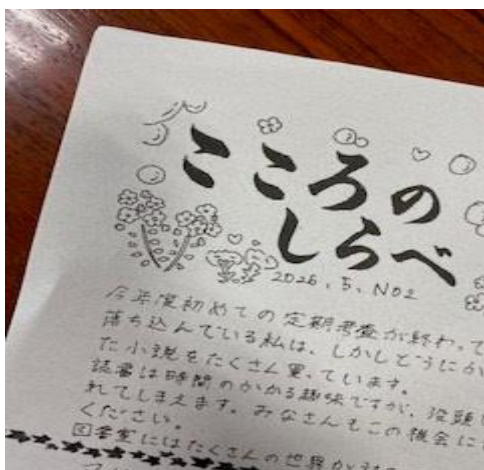 こころの
しらべ
2026.5.NO2
今年度初めての定期考査が終わって
落ち込んでいる私は、しかしどうにか
た小説をたくさん買っています。
読書は時間のかかる趣味ですが、没頭
れてしまえます。みなさんもこの機会に
ください。
図書室にはたくさんの世界が